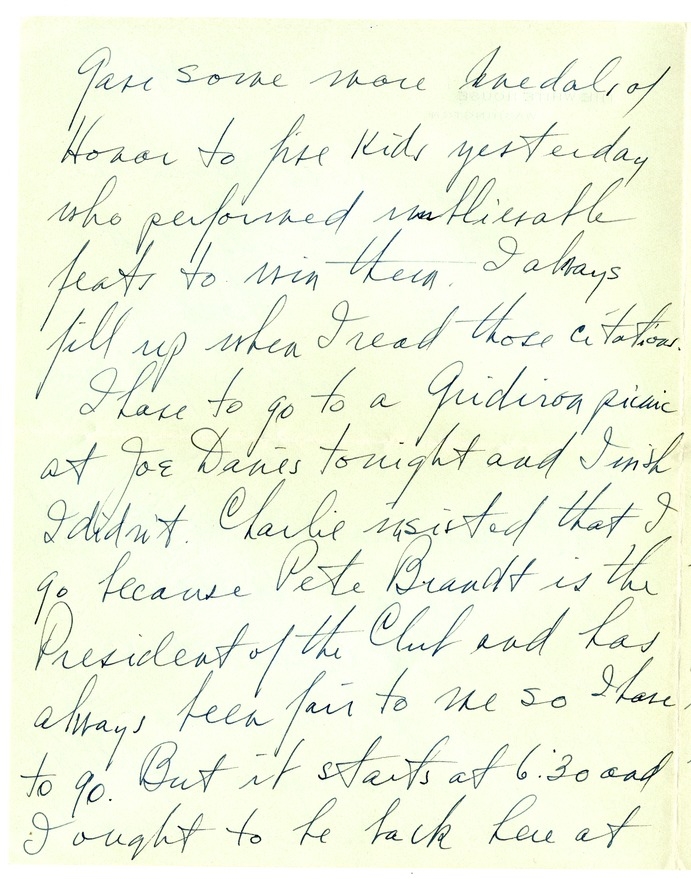 Gave some more Medals of
Honor to five kids yesterday
who performed unblievable
feats to win them. I always
fill up when I read those citations.
I have to go to a Gridiron picnic
at Joe Davies tonight and I wish
I didn't. Charlie insisted that I
go because Pete Brandt is the
President of the Club and has
always been fair to me so I have
to go. But it starts at 6:30 and
I ought to be back here at